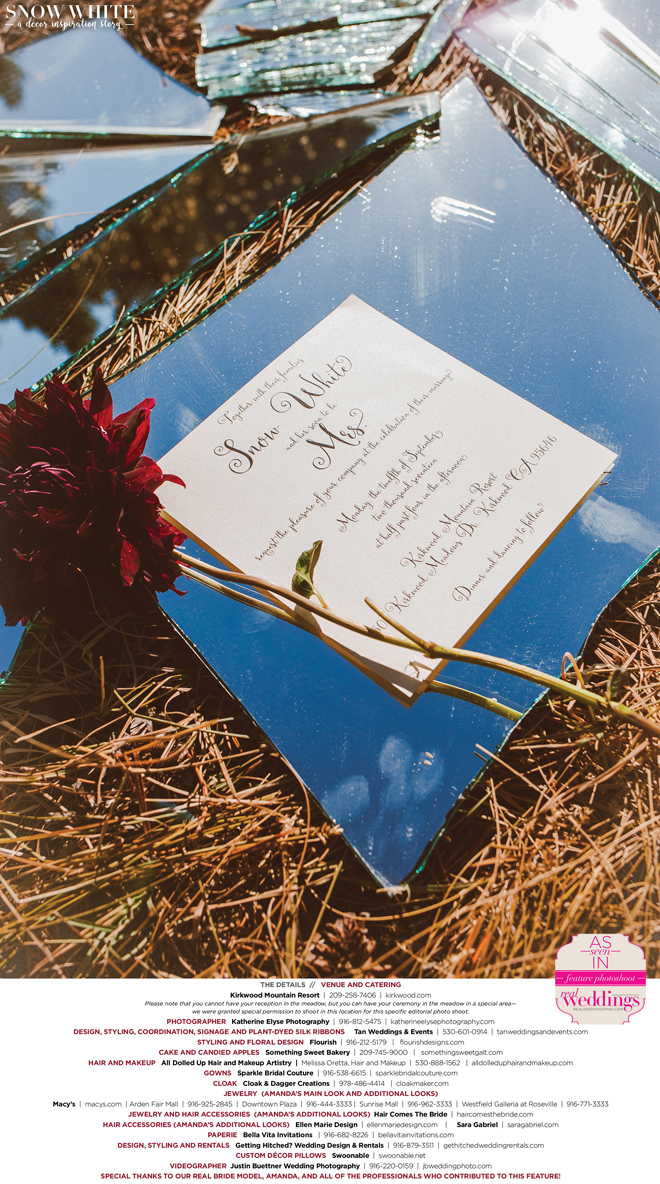 SNOW WHITE
a décor inspiration story
Together with their families
Snow White
and her soon to be
Mrs.
request the pleasure of your company at the celebration of their marriage
Monday the twelfth of September
two thousand seventeen
at half past four in the afternoon
Kirkwood Mountain Resort
Kirkwood Meadows Dr. Kirkwood, CA 95646
Dinner and dancing to follow
AS
seen
IN
feature photoshoot
real
weddings
REALWEDDINGSMAG.COM
THE DETAILS // VENUE AND CATERING
Kirkwood Mountain Resort | 209-258-7406 | kirkwood.com
Please note that you cannot have your reception in the meadow, but you can have your ceremony in the meadow in a special area—
we were granted special permission to shoot in this location for this specific editorial photo shoot.
PHOTOGRAPHER Katherine Elyse Photography | 916-812-5475 | katherineelysephotography.com
DESIGN, STYLING, COORDINATION, SIGNAGE AND PLANT-DYED SILK RIBBONS Tan Weddings & Events | 530-601-0914 | tanweddingsandevents.com
STYLING AND FLORAL DESIGN Flourish | 916-212-5179 | flourishdesigns.com
CAKE AND CANDIED APPLES Something Sweet Bakery | 209-745-9000 | somethingsweetgalt.com
HAIR AND MAKEUP All Dolled Up Hair and Makeup Artistry | Melissa Oretta, Hair and Makeup | 530-888-1562 | alldolleduphairandmakeup.com
GOWNS Sparkle Bridal Couture | 916-538-6615 | sparklebridalcouture.com
CLOAK Cloak & Dagger Creations | 978-486-4414 | cloakmaker.com
JEWELRY (AMANDA'S MAIN LOOK AND ADDITIONAL LOOKS)
Macy's | macys.com | Arden Fair Mall | 916-925-2845 | Downtown Plaza | 916-444-3333 | Sunrise Mall | 916-962-3333 | Westfield Galleria at Roseville | 916-771-3333
JEWELRY AND HAIR ACCESSORIES (AMANDA'S ADDITIONAL LOOKS) Hair Comes The Bride | haircomesthebride.com
HAIR ACCESSORIES (AMANDA'S ADDITIONAL LOOKS) Ellen Marie Design | ellenmariedesign.com | Sara Gabriel | saragabriel.com
PAPERIE Bella Vita Invitations | 916-682-8226 | bellavitainvitations.com
DESIGN, STYLING AND RENTALS Getting Hitched? Wedding Design & Rentals | 916-879-3511 | gethitchedweddingrentals.com
CUSTOM DÉCOR PILLOWS Swoonable | swoonable.net
VIDEOGRAPHER Justin Buettner Wedding Photography | 916-220-0159 | jbweddingphoto.com
SPECIAL THANKS TO OUR REAL BRIDE MODEL, AMANDA, AND ALL OF THE PROFESSIONALS WHO CONTRIBUTED TO THIS FEATURE!